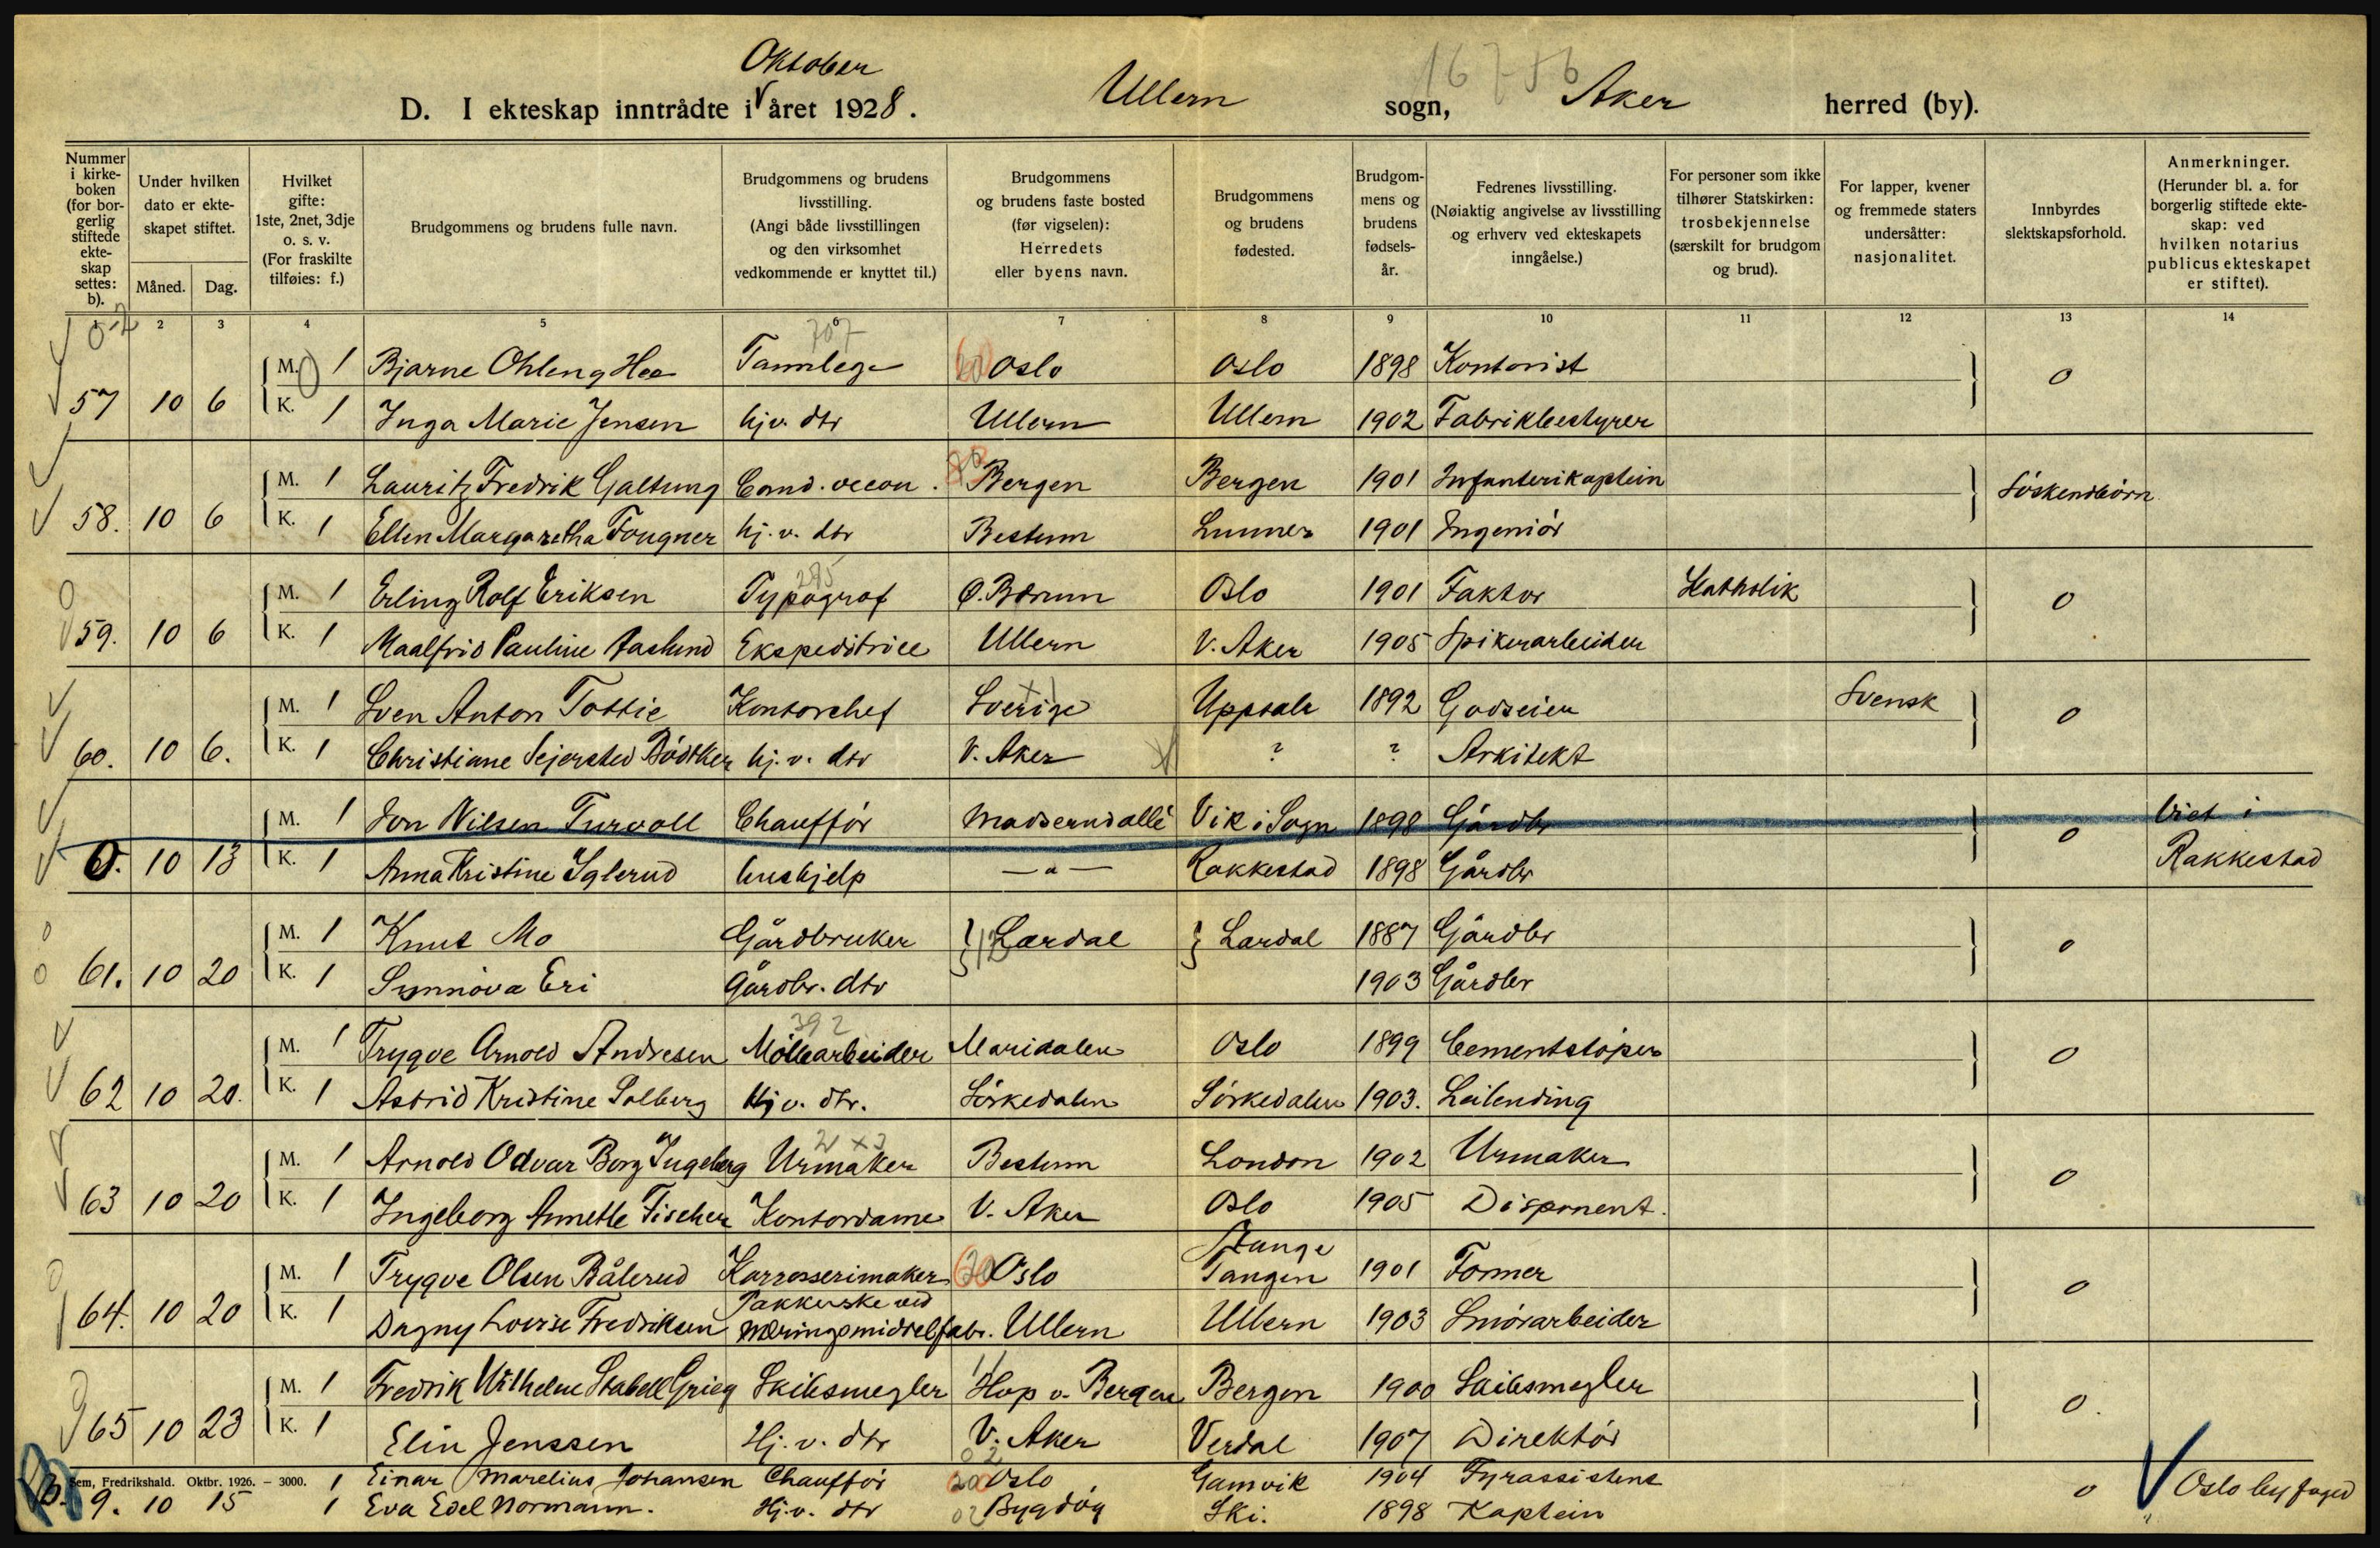 Oktober
D. I ekteskap inntrådte i V året 1928. Ullern sogn, Aker herred (by).
Nummer i kirke- boken (for bor- gerlig stiftede ekte- skap settes: b).
Under hvilken dato er ekte- skapet stiftet.
Måned. Dag.
Hvilket gifte: 1ste, 2net, 3dje o. s. v. (For fraskilte tilføies: f.)
Brudgommens og brudens fulle navn.
Brudgommens og brudens livsstilling. (Angi både livsstillingen og den virksomhet vedkommende er knyttet til.)
Brudgommens og brudens faste bosted (før vigselen): Herredets eller byens navn.
Brudgommens og brudens fødested.
Brudgom- mens og brudens fødsels- år.
Fedrenes livsstilling. (Nøiaktig angivelse av livsstilling og erhverv ved ekteskapets inngåelse.)
For personer som ikke tilhører Statskirken: trosbekjennelse (særskilt for brudgom og brud).
For lapper, kvener og fremmede staters undersåtter: nasjonalitet.
Innbyrdes slektskapsforhold.
Anmerkninger. (Herunder bl. a. for borgerlig stiftede ekte- skap: ved hvilken notarius publicus ekteskapet er stiftet).
2 3 4 5 6 7 8 9 10 11 12 13 14
M. 1 Bjarne Ohleng Hee Tannlege Oslo Oslo 1898 Kontorist 0
57 10 6 K. 1 Inga Marie Jensen hjv. dtr Ullern Ullern 1902 Fabrikbestyrer
M. 1 Lauritz Fredrik Galtung Cand. oecon. Bergen Bergen 1901 Infanterikaptein Søskendbørn
58. 10 6 K. 1 Ellen Margaretha Fougner hj. v. dtr Bestum Lunner 1901 Ingeniør
M. 1 Erling Rolf Eriksen Typograf Ø. Bærum Oslo 1901 Faktor Katholik 0
59. 10 6 K. 1 Maalfrid Pauline Aaslund Ekspeditrice Ullern V. Aker 1905 Spikerarbeider
M. 1 Sven Anton Tottie Kontorchef Sverige Uppsala 1892 Godseier Svensk 0
60. 10 6. K. 1 Christiane Sejersted Bødtker hj. v. dtr V. Aker ? ? Arkitekt
M. 1 Jon Nilsen Turvoll Chauffør Madserudallé Vik i Sogn 1898 Gårdbr 0 Viet i
10 13 K. 1 Anna Kristine Iglerud hushjelp —"— Rakkestad 1898 Gårdbr Rakkestad
M. 1 Knut Mo Gårdbruker } Lærdal } Lærdal 1887 Gårdbr 0
61. 10 20 K. 1 Synnöva Eri Gårdbr. dtr 1903 Gårdbr
M. 1 Trygve Arnold Andresen Møllearbeider Maridalen Oslo 1899 Cementstøper 0
62 10 20. K. 1 Astrid Kristine Solberg Hj v. dtr. Sørkedalen Sørkedalen 1903. Leilending
M. 1 Arnold Odvar Borg Ingeberg Urmaker Bestum London 1902 Urmaker 0
63 10 20 K. 1 Ingeborg Annette Fischer Kontordame V. Aker Oslo 1905 Disponent.
Stange
M. 1 Trygve Olsen Bålerud Karrosserimaker Oslo Tangen 1901 Former 0
Pakkerske ved
64. 10 20 K. 1 Dagny Lovise Fredriksen næringsmiddelfabr. Ullern Ullern 1903 Smørarbeider
M. 1 Fredrik Wilhelm Stabell Grieg Skibsmegler Hop v. Bergen Bergen 1900 Skibsmegler 0.
65 10 23 K. 1 Elin Jenssen Hj. v. dtr V. Aker Verdal 1907 Direktør
Sem, Fredrikshald. Oktbr. 1926. – 3000. 1 Einar Marelius Johansen Chauffør Oslo Gamvik 1904 Fyrassistent
b. 9. 10 15 1 Eva Edel Normann. Hj. v. dtr Bygdøy Ski. 1898 Kaptein 0 Oslo byfoged